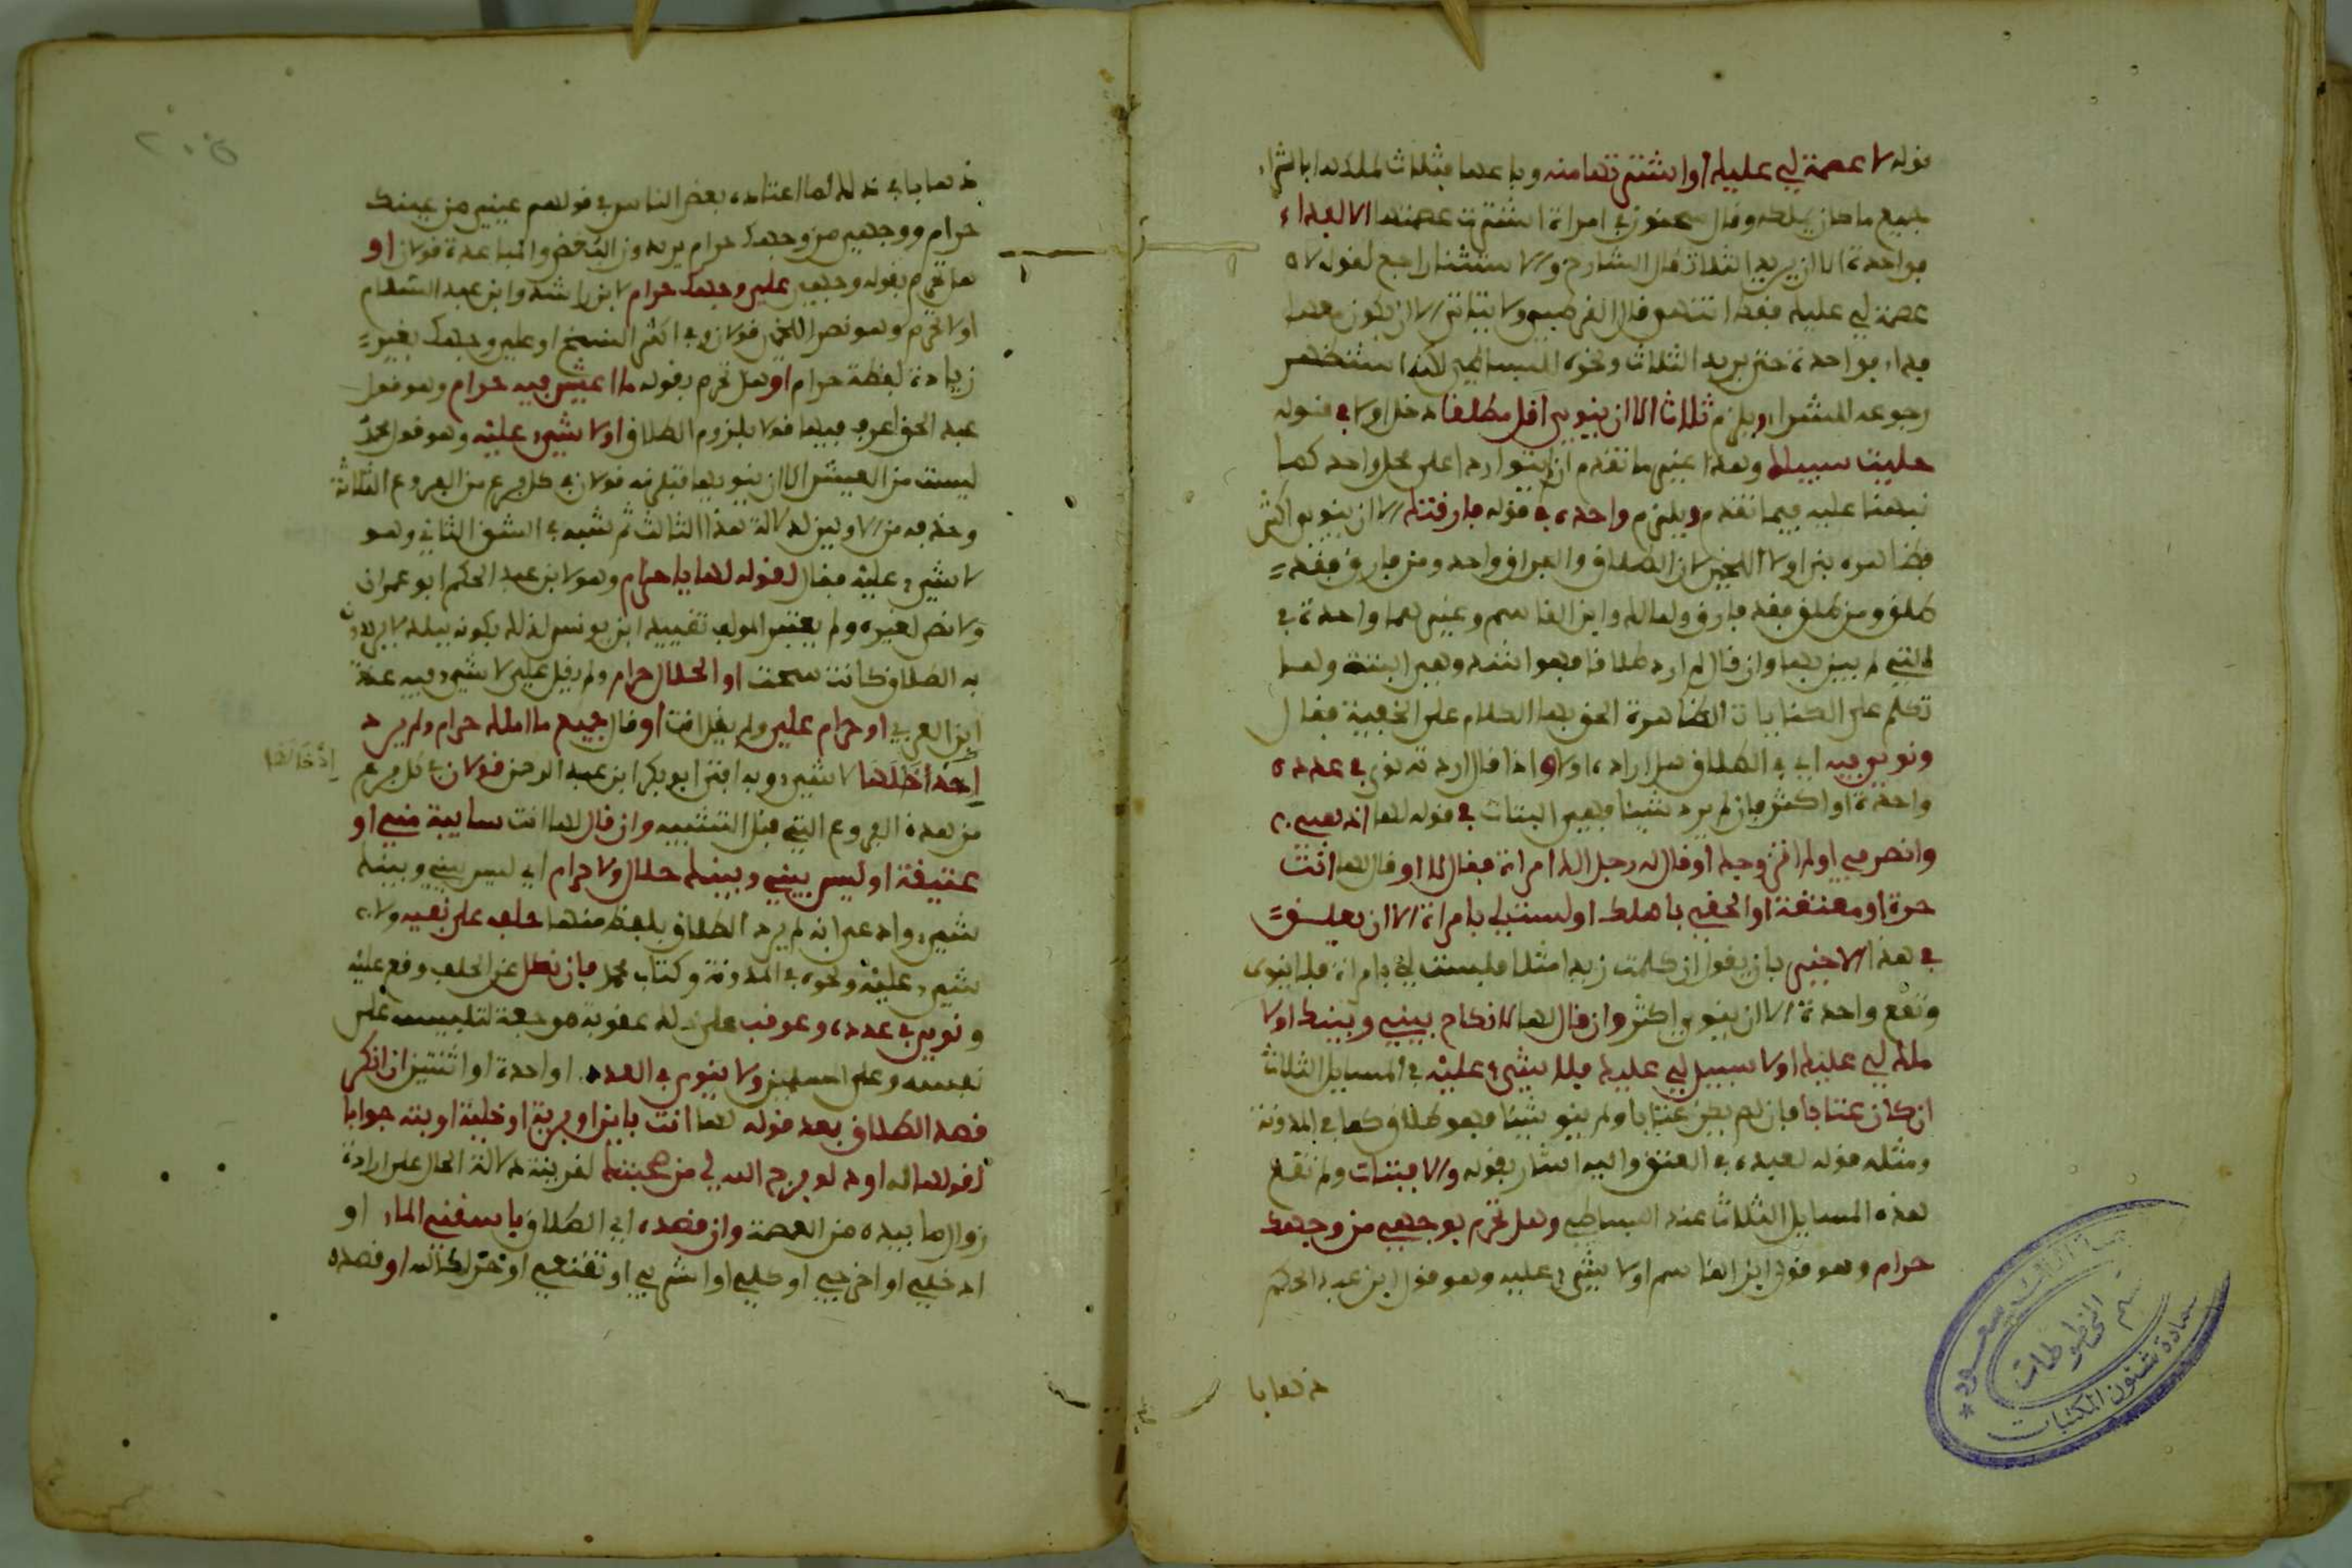 قوله لا عصمة لي عليك او اشترتها منه وباعها فثلاث لملكها بالشراء
جميع ما كان يملك وقال سحنون في امراة اشترت عصمتها الا لفداء
فواحدة الا ان يريد الثلاث قال الشارح والاستثنا راجع لقوله لا
عصمة لي عليك فقط انتهى قال القرطبي ولا بتاتا الا ان يكون معها
فداء فواحدة حتى يريد الثلاث ونحوه للبساطي لكنه استظهر
رجوعه للشراء ويلزم ثلاث الا ان ينوي اقل مطلقا دخل او لا في قوله
خليت سبيلك وهذا اعني ما تقدم ان لم يتوارد على محل واحد كما
نبهنا عليه فيما تقدم ويلزم واحدة في قوله فارقتك الا ان ينوي اكثر
فظاهره بنى او لا اللخمي لان الطلاق والفراق واحد ومن فارق فقد
طلق ومن طلق فقد فارق ولمالك وابن القاسم وغيرهما واحدة في
التي لم يبن بها وان قال لم ارد طلاقا فهو اشد وهي البتة ولما
تكلم على الكنايات الظاهرة الحق بها الكلام على الخفية فقال
ونوي فيه اي في الطلاق هل اراده او لا واذا قال اردته نوي في عدده
واحدة او اكثر فان لم يرد شيئا فهي البتات في قوله لها اذهبي
وانصرفي او لم اتزوجك او قال له رجل الك امراة فقال لا او قال لها انت
حرة او معتقة او الحقي باهلك او لست لي بامراة الا ان يعلق
في هذا الاخير بان يقول ان كلمت زيدا مثلا فلست لي بامراة فلا ينوى
وتقع واحدة الا ان ينوي اكثر وان قال لها لا نكاح بيني وبينك او لا
ملك لي عليك او لا سبيل لي عليك فلا شيء عليه في المسايل الثلاث
ان كان عتابا فان لم يكن عتابا ولم ينو شيئا فهو طلاق كما في المدونة
ومثله قوله لعبده في العتق واليه اشار بقوله والا فبتات ولم تقع
هذه المسايل الثلاث عند البساطي وهل تحرم بوجهي من وجهك
حرام وهو قول ابن القاسم او لا شيء عليه وهو قول ابن عبد الحكم
ذهابا
ذهابا في ذلك لما اعتاده بعض الناس في قولهم عيني من عينك
حرام ووجهي من وجهك حرام يريدون البغض والمباعدة قولان او
هل تحرم بقوله وجهي على وجهك حرام لابن راشد وابن عبد السلام
او لا تحرم وهو نص اللخمي قولان وفي اكثر النسخ او على وجهك بغير
زيادة لفظة حرام او هل تحرم بقوله ما اعيش فيه حرام وهو قول
عبد الحق اعرف فيها قولا بلزوم الطلاق او لا شيء عليه وهو قول محمد
ليست من العيش الا ان ينويها فتلزمه قولان في كل فرع من الفروع الثلاثة
وحذفه من الاولين لدلالة هذا الثالث ثم شبه في الشق الثاني وهو
لا شيء عليه فقال لقوله لها يا حرام وهو لابن عبد الحكم ابو عمران
ولا نص لغيره ولم يعتبر المولف تقييد ابن يونس لذلك بكونه ببلد لا يريدون
به الطلاق كانت سحت او الحلال حرام ولم يقل علي لا شيء فيه عند
ابن العربي او حرام علي ولم يقل انت او قال جميع ما املك حرام ولم يرد
إدخالها لا شيء وبه افتى ابو بكر ابن عبد الرحمن قولان في كل فرع
إدخالها
من هذه الفروع التي قبل التشبيه وان قال لها انت سايبة مني او
عتيقة او ليس بيني وبينك حلال ولا حرام اي ليس بيني وبينك
شيء وادعى انه لم يرد الطلاق بلفظ منها حلف على نفيه ولا
شيء عليه ونحوه في المدونة وكتاب محمد فان نكل عن الحلف وقع عليه
ونوي في عدده وعوقب على ذلك عقوبة موجعة لتلبيسه على
نفسه وعلى المسلمين ولا ينوى في العدد واحدة او اثنتين ان انكر
قصد الطلاق بعد قوله لها انت باين او برية او خلية او بتة جوابا
لقولها له اود لو فرج الله لي من صحبتك لقرينة دلالة الحال على ارادة
زوال ما بيده من العصمة وان قصده اي الطلاق باسقني الماء او
ادخلي او اخرجي او كلي او اشربي او تقنعي او غزلك الله او قصده